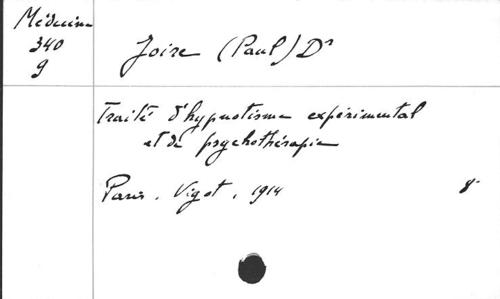 Médecine
340
9
Joire (Paul) Dr
Traité d'hypnotisme expérimental
et de psychothérapie
Paris. Vigot, 1914 8°